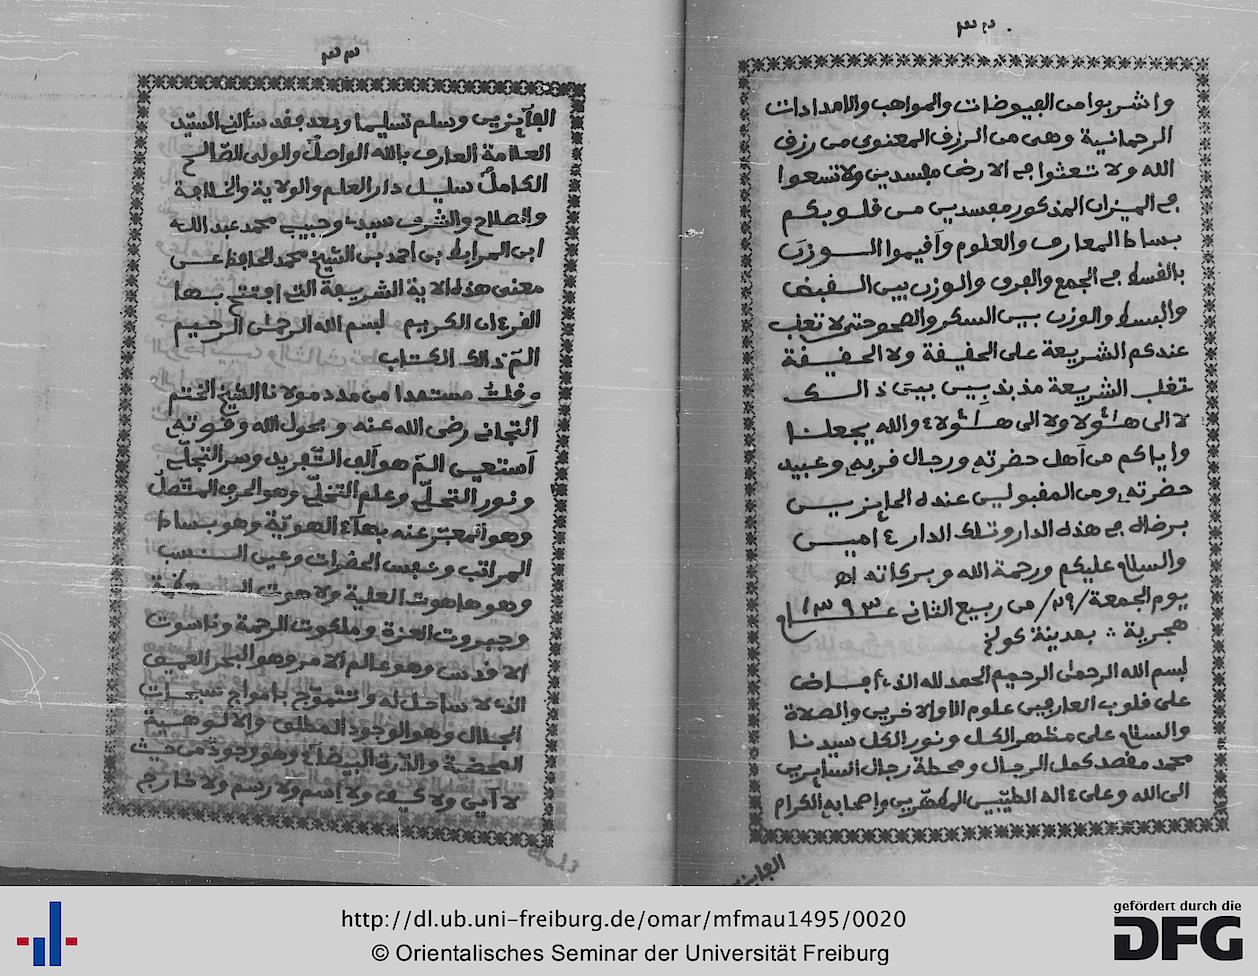 ٣٢
واشربوا من الفيوضات والمواهب والامدادات
الرحمانية وهى من الرزق المعنوى من رزق
الله ولا تعثوا في الارض مفسدين ولا تسعوا
في الميزان المذكور مفسدين من قلوبكم
بساط المعارف والعلوم وأقيموا الوزن
بالقسط في الجمع والفرق والوزن بين القبض
والبسط والوزن بين السكر والصحو حتى لا تغلب
عندكم الشريعة على الحقيقة ولا الحقيقة
تغلب الشريعة مذبذبين بين ذالك
لا الى هـٰؤلاء ولا الى هـٰؤلاء والله يجعلنا
واياكم من أهل حضرته ورجال قربه وعبيد
حضرته ومن المقبولين عنده الحايزين
برضاه في هذه الدار وتلك الدار ءامين
والسلام عليكم ورحمة الله وبركاته اهـ
يوم الجمعة /٢٩/ من ربيع الثانى عــ١٣٩٣ــام
هجرية ؛ بمدينة كولخ
بسم الله الرحمٰن الرحيم الحمد لله الذى أفاض
على قلوب العارفين علوم الاولين والاخرين والصلاة
والسلام على مظهر الكل ونور الكل سيدنا
محمد مقصد كمل الرجال ومحطة رجال السايرين
الى الله وعلى ءاله الطيّبين المطهّرين واصحابه الكرام
الفايزين
٣٣
الفآيزين وسلم تسليما وبعد فقد سألنى السيّد
العلامة العارف بالله الواصل والولى الصّالح
الكامل سليل دار العلم والولاية والخلافة
والصلاح والشرف سيدى وحبيب محمد عبد الله
ابن المرابط بن احمد بن الشيخ محمد الحافظ عن
معنى هذه الاية الشريفة التى افتتح بها
القرءان الكريم بسم الله الرحمٰن الرحيم
الٓمٓ ذالك الكتاب
وقلتُ مستمدا من مدد مولانا الشيخ الختم
التجانى رضى الله عنه وبحول الله وقوته
أستعين الٓمٓ هو ألف التّفريد وسر التجلّى
ونور التحلّى وعلم التخلّى وهو الحرف المتّصل
وهو المعبّر عنه بهآء الهويّة وهو بساط
المراتب وعبس الحضرات وعين النسب
وهو هاهوت العلية ولاهوت
وجبروت العزة وملكوت الرحمة وناسوت
الاقدس وهو عالم الامر وهو البحر العميق
الذى لا ساحل له وتتموّج بامواج سبحات
الجلال وهو الوجود المطلق والالوهية
المحضة والدّرة البيضآء وهو وجود من حيث
لا أين ولا كيف ولا إسم ولا رسم ولا خارج
http://dl.ub.uni-freiburg.de/omar/mfmau1495/0020
© Orientalisches Seminar der Universität Freiburg
gefördert durch die
DFG